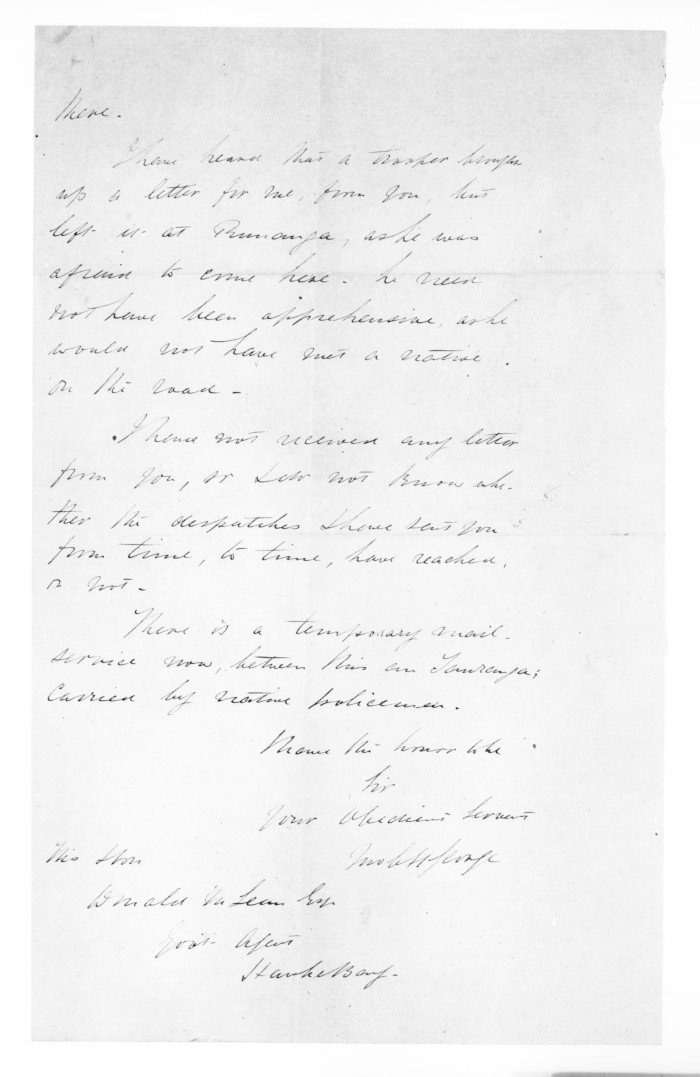 there.
I have heard that a trooper brought
up a letter for me, from you, but
left it at Runanga, as he was
afraid to come here. he need
not have been apprehensive, as he
would not have met a native
on the road -
I have not received any letter
from you, or do not know whe-
ther the despatches I have sent you
from time, to time, have reached,
or not -
There is a temporary mail-
service now, between this an Tauranga;
carried by native policemen.
I have the honor to be
Sir
Your Obedient Servant
His Hon
Donald McLean Esq
Govt Agent
Hawke Bay -